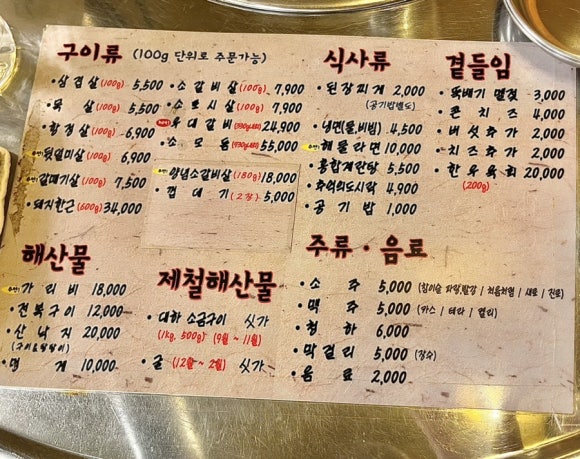 구이류 (100g 단위로 주문가능)
·삼겹살(100g) 5,500
·목 살(100g) 5,500
·항정살(100g) 6,900
·뒷덜미살(100g) 6,900
·갈매기살(100g) 7,500
·돼지한근(600g) 34,000
·소갈비살(100g) 7,900
·소토시살(100g) 7,900
·우대갈비 24,900
·소모둠 55,000
·양념소갈비살(180g) 18,000
·껍데기(2장) 5,000
식사류
·된장찌개 2,000
(공기밥별도)
·냉면(물/비빔) 4,500
·해물라면 10,000
·홍합계란탕 5,500
·추억의도시락 4,900
·공기밥 1,000
곁들임
·뚝배기 멜젓 3,000
·콘치즈 4,000
·버섯추가 2,000
·치즈추가 2,000
·한우육회 20,000
(200g)
해산물
·가리비 18,000
·전복구이 12,000
·산낙지 20,000
·멍게 10,000
제철해산물
·대하 소금구이 싯가
(1kg, 500g) (9월~11월)
·굴 (12월~2월) 싯가
주류·음료
·소주 5,000 (참이슬 파랑,빨강 / 처음처럼 / 새로 / 진로)
·맥주 5,000 (카스 / 테라 / 켈리)
·청하 6,000
·막걸리 5,000 (장수)
·음료 2,000